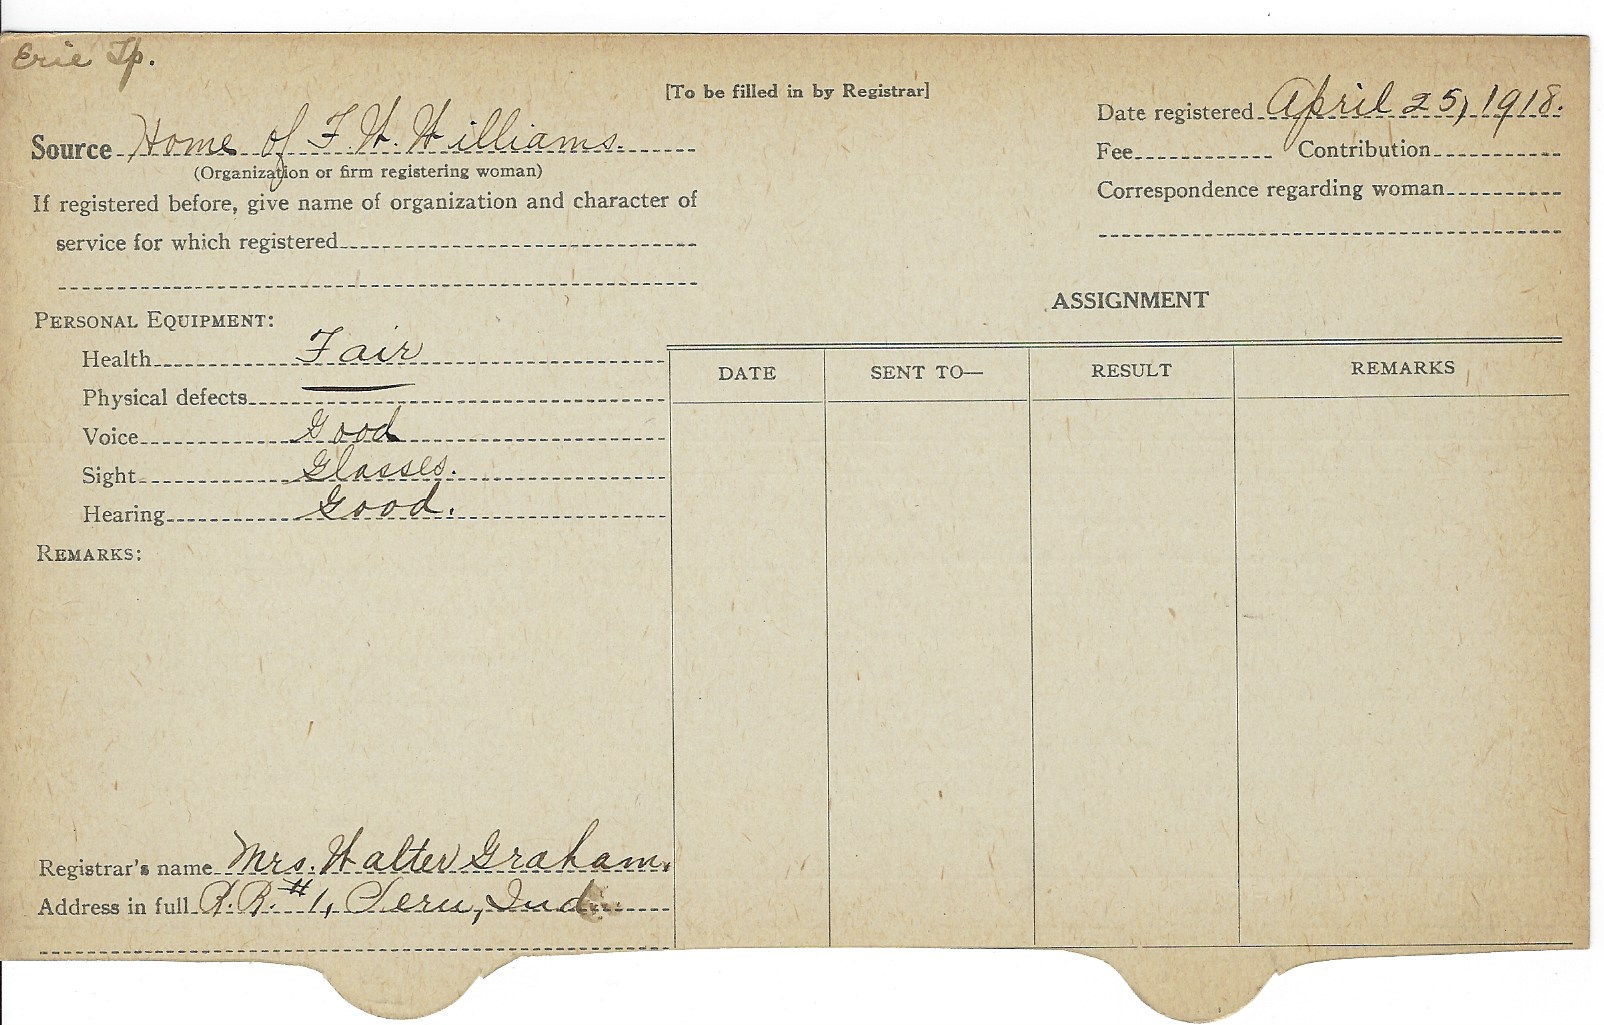 Erie Tp.
[To be filled in by Registrar]
Source Home of F. W. Williams.
(Organization or firm registering woman)
If registered before, give name of organization and character of
service for which registered
Date registered April 25, 1918.
Fee Contribution
Correspondence regarding woman
PERSONAL EQUIPMENT:
Health Fair
Physical defects —
Voice Good
Sight Glasses.
Hearing Good.
REMARKS:
ASSIGNMENT
DATE SENT TO— RESULT REMARKS
Registrar's name Mrs. Walter Graham.
Address in full R.R. #1, Peru, Ind.